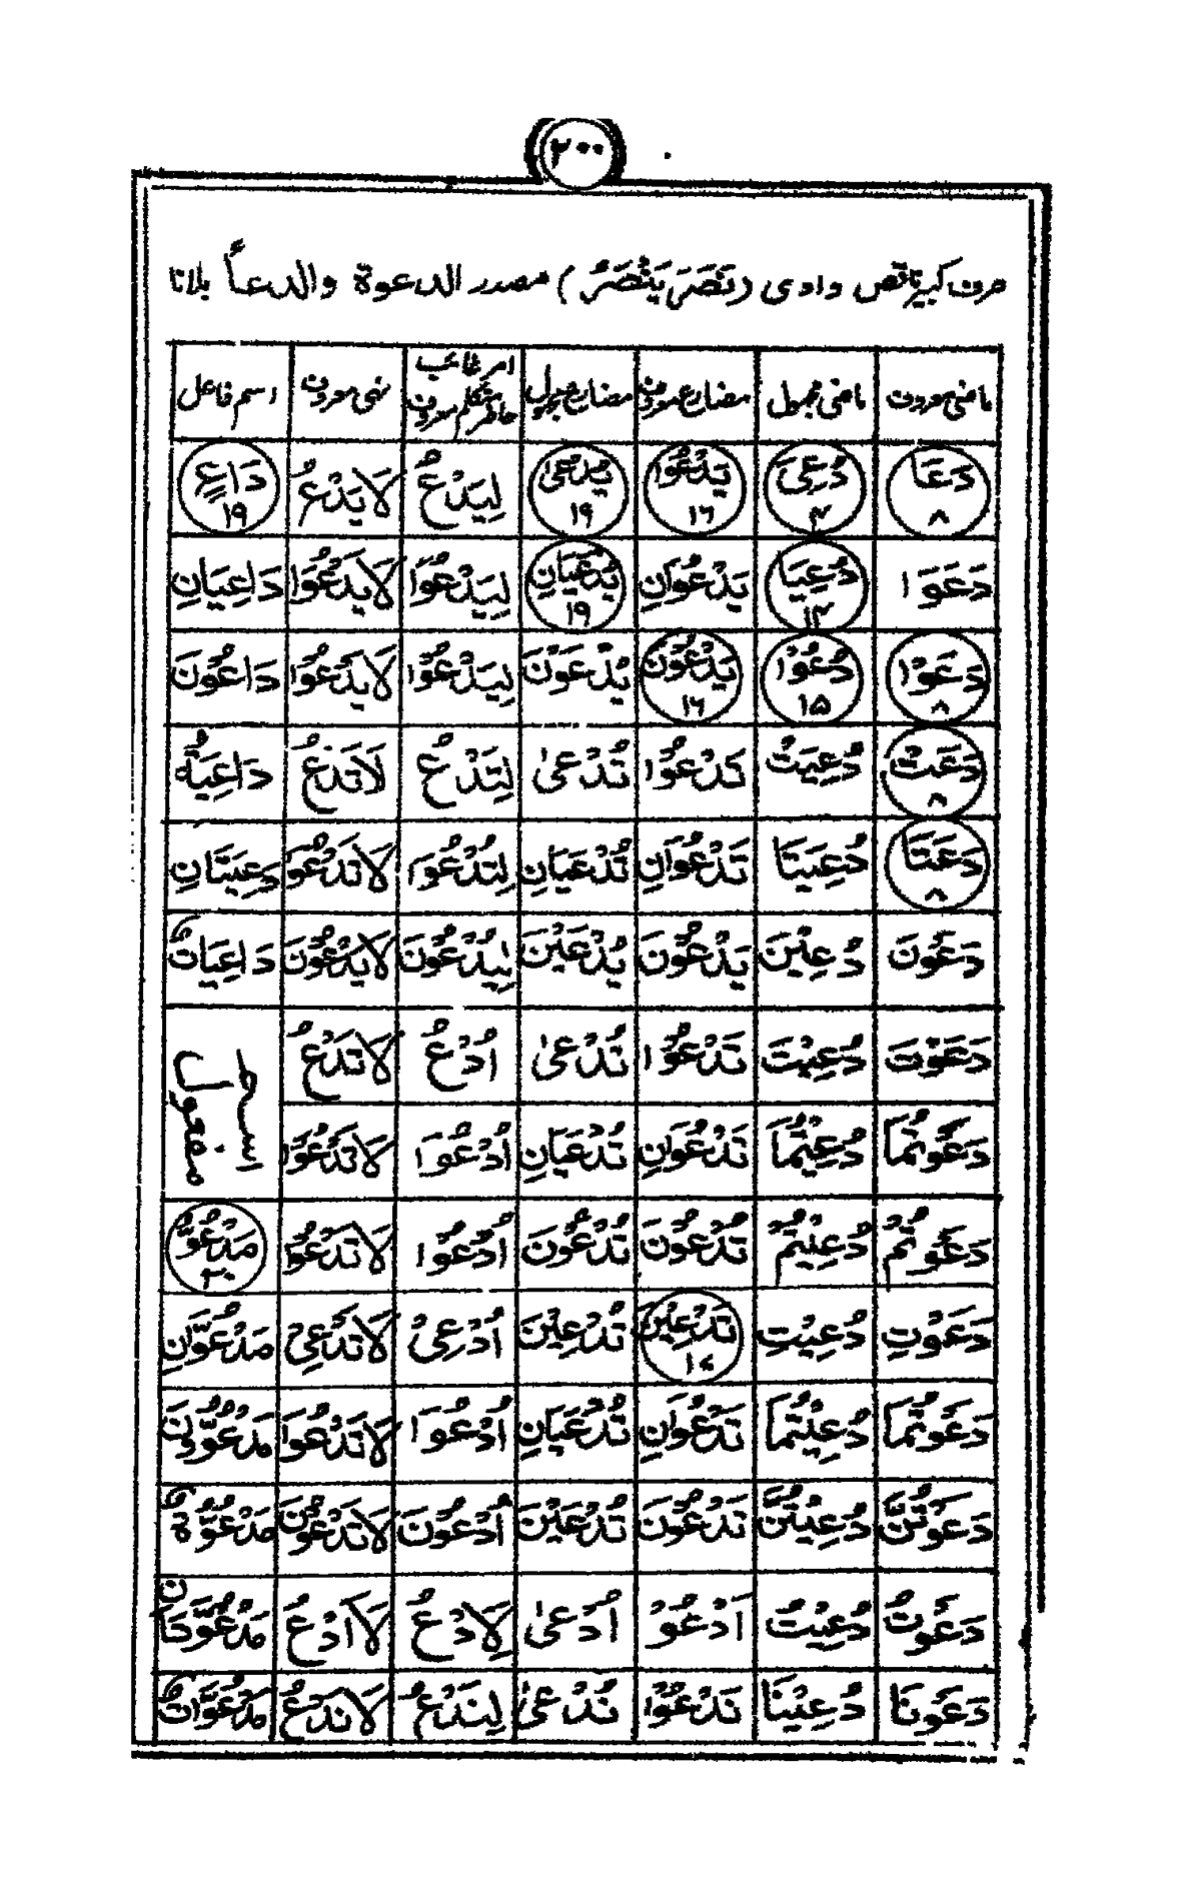 ٢٠٠
صرف کبیر ناقص وادی (نَصَرَ یَنْصُرُ) مصدر الدعوة والدعاً بلانا
ماضی معروف ماضی مجہول مضارع معروف مضارع مجہول امر غائب حاضر متکلم معروف نہی معروف اسم فاعل
دَعَا ٨ دُعِیَ یَدْعُوْا ١٦ یُدْعیٰ ١٩ لِیَدْعُ لَا یَدْعُ دَاعٍ ١٩
دَعَوَا دُعِیَا یَدْعُوَانِ یُدْعَیَانِ ١٩ لِیَدْعُوَا لَا یَدْعُوَا دَاعِیَانِ
دَعَوْا ٨ دُعُوْا ١٥ یَدْعُوْنَ ١٦ یُدْعَوْنَ لِیَدْعُوْا لَا یَدْعُوْا دَاعُوْنَ
دَعَتْ ٨ دُعِیَتْ تَدْعُوْا تُدْعیٰ لِتَدْعُ لَا تَدْعُ دَاعِیَةٌ
دَعَتَا ٨ دُعِیَتَا تَدْعُوَانِ تُدْعَیَانِ لِتَدْعُوَا لَا تَدْعُوَا دَعِیَتَانِ
دَعَوْنَ دُعِیْنَ یَدْعُوْنَ یُدْعَیْنَ لِیَدْعُوْنَ لَا یَدْعُوْنَ دَاعِیَاتٌ
دَعَوْتَ دُعِیْتَ تَدْعُوْا تُدْعیٰ اُدْعُ لَا تَدْعُ اسم مفعول
دَعَوْتُمَا دُعِیْتُمَا تَدْعُوَانِ تُدْعَیَانِ اُدْعُوَا لَا تَدْعُوَا
دَعَوْتُمْ دُعِیْتُمْ تَدْعُوْنَ تُدْعَوْنَ اُدْعُوْا لَا تَدْعُوْا مَدْعُوٌّ ٢٠
دَعَوْتِ دُعِیْتِ تَدْعِیْنَ تُدْعَیْنَ اُدْعِیْ لَا تَدْعِیْ مَدْعُوَّانِ
دَعَوْتُمَا دُعِیْتُمَا تَدْعُوَانِ تُدْعَیَانِ اُدْعُوَا لَا تَدْعُوَا مَدْعُوُّوْنَ
دَعَوْتُنَّ دُعِیْتُنَّ تَدْعُوْنَ تُدْعَیْنَ اُدْعُوْنَ لَا تَدْعُوْنَ مَدْعُوَّةٌ
دَعَوْتُ دُعِیْتُ اَدْعُوْ اُدْعیٰ لِاَدْعُ لَا اَدْعُ مَدْعُوَّتَانِ
دَعَوْنَا دُعِیْنَا نَدْعُوْا نُدْعیٰ لِنَدْعُ لَا نَدْعُ مَدْعُوَّاتٌ